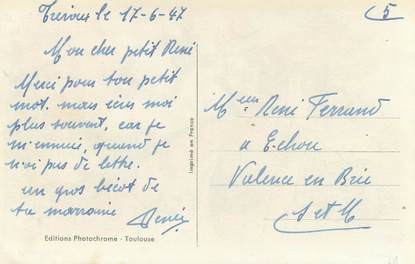 Trévoux le 17-6-47
5
Mon cher petit René
Merci pour ton petit
mot. mais écris moi
plus souvent, car je
m'ennuie, quand je
n'ai pas de lettre.
un gros bécot de
ta marraine
Mr René Ferrand
à Echou
Valence en Brie
S et M
Imprimé en France
Editions Photochrome - Toulouse